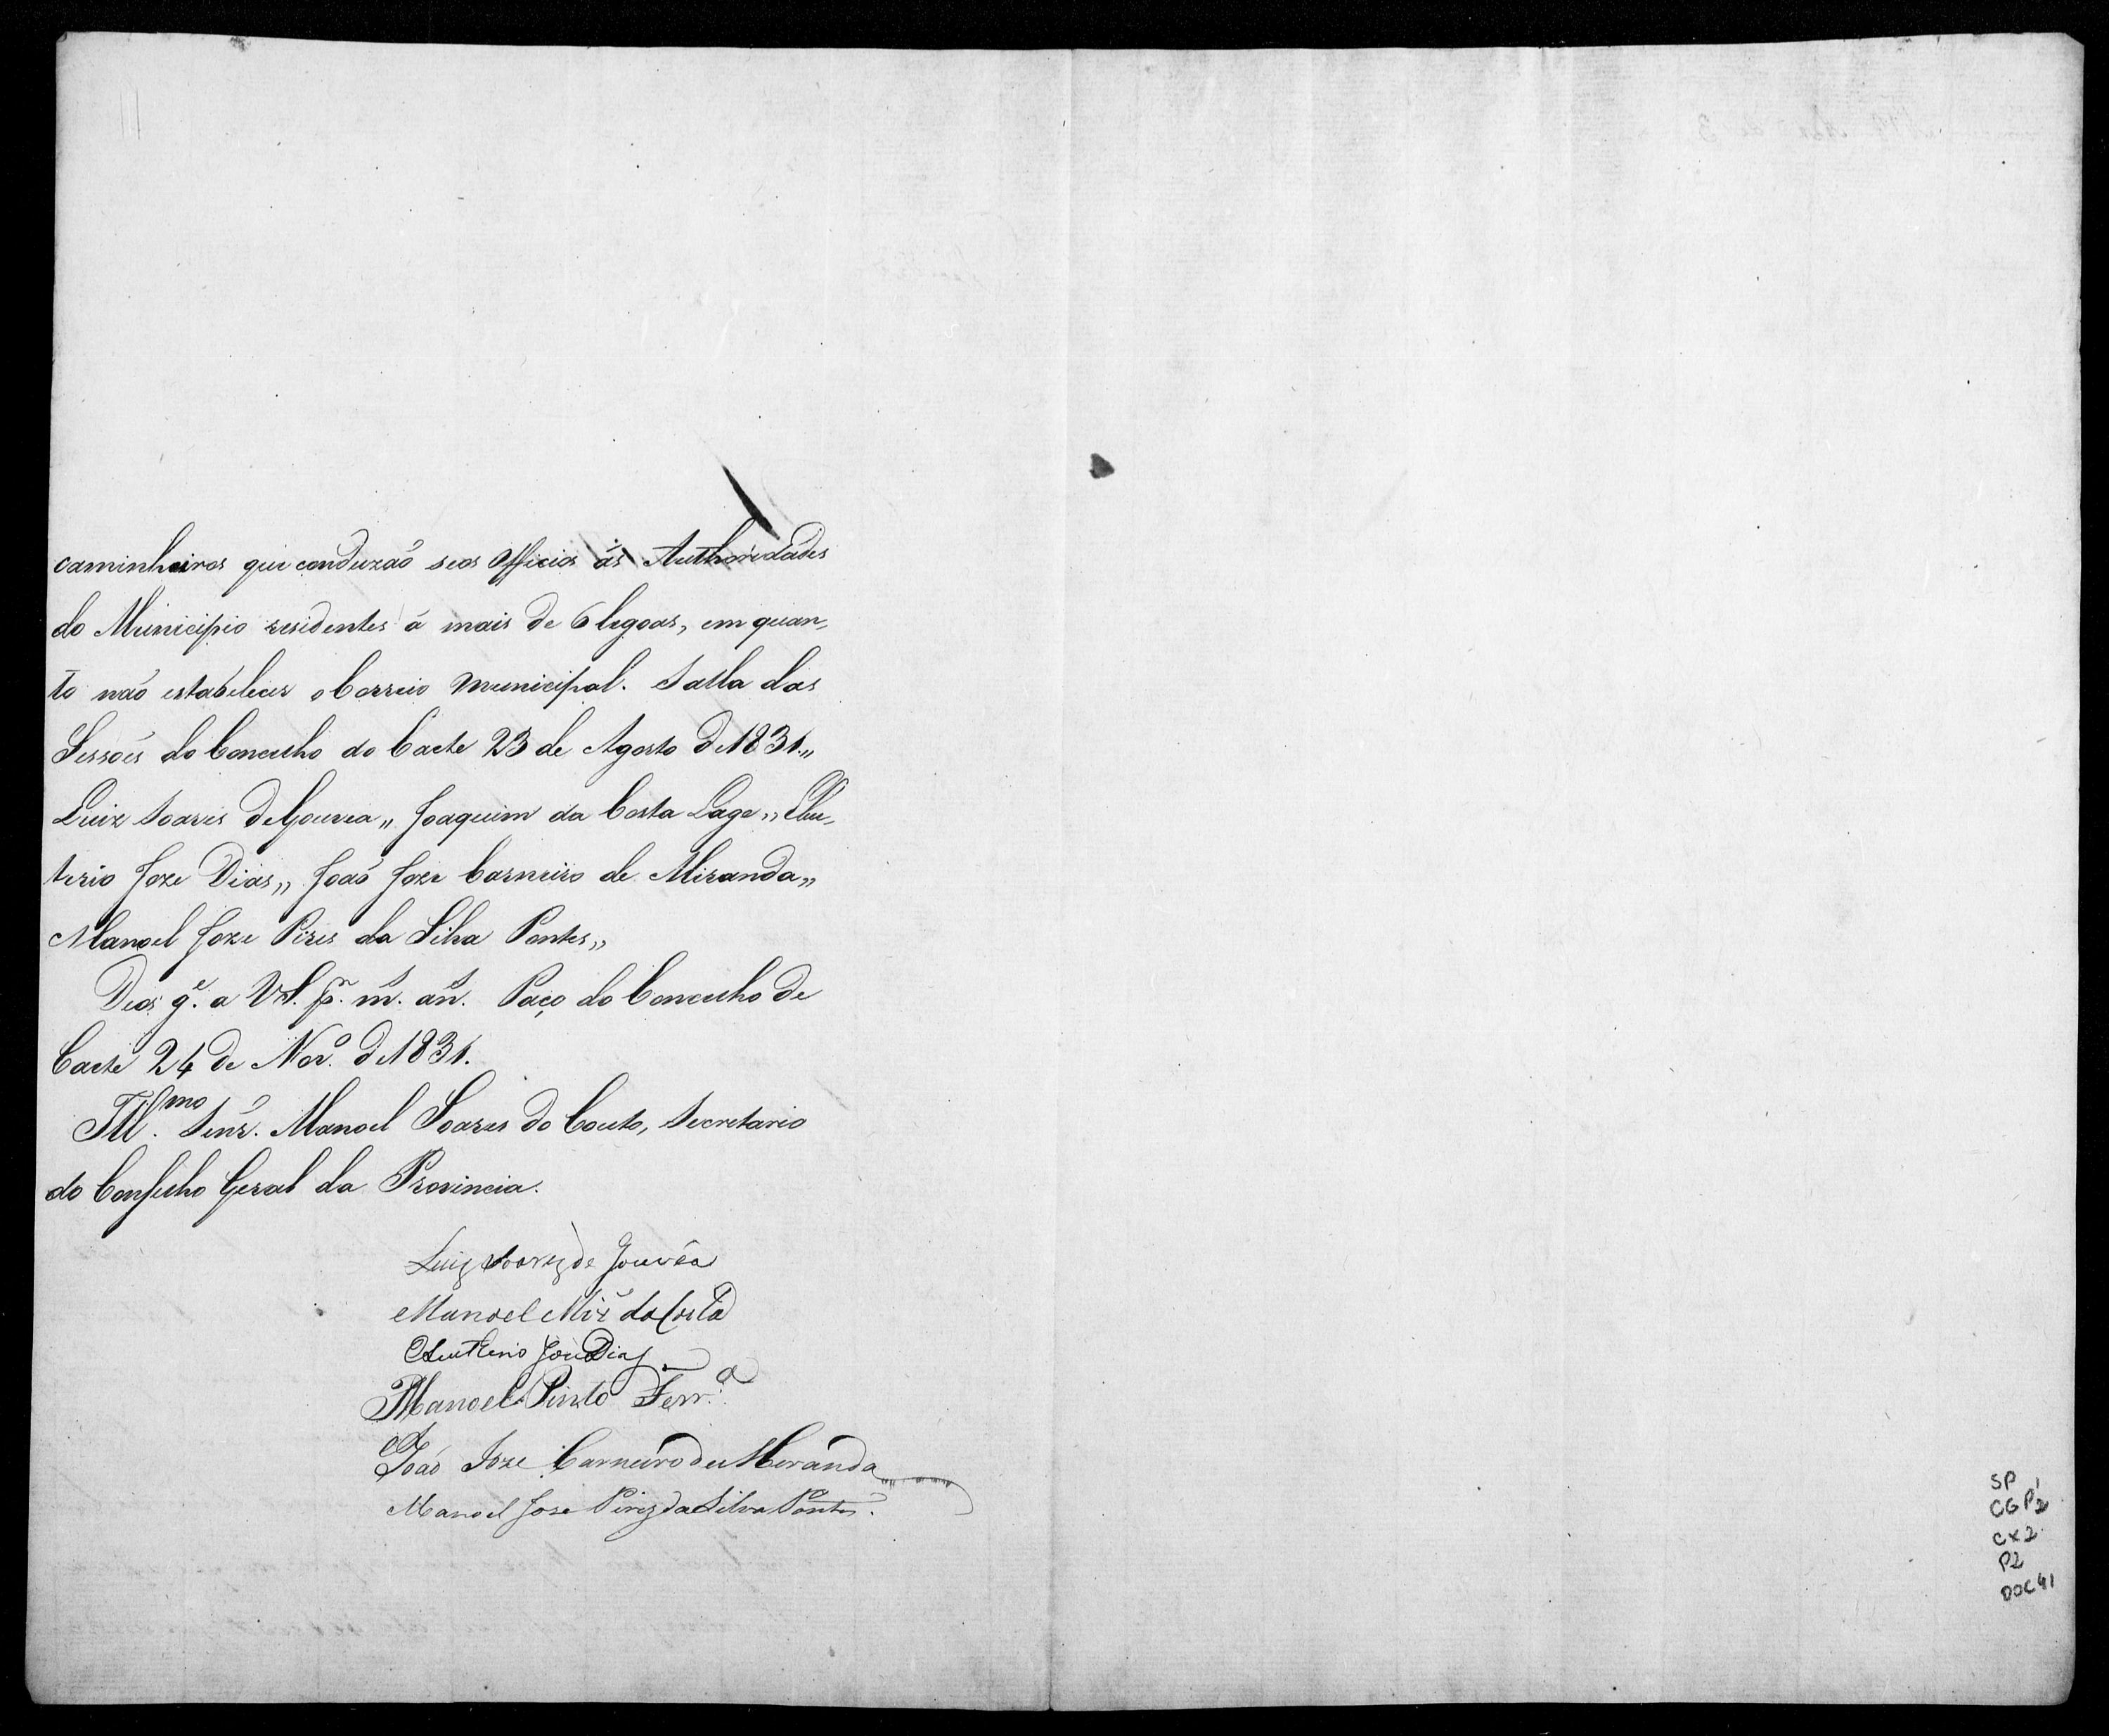 caminheiros que conduzaõ seos Officios ás Authoridades
do Municipio residentes á mais de 6 legoas, em quan-
to naõ estabelecer o Correio Municipal. Salla das
Sessoẽs do Concelho do Caete 23 de Agosto de 1831.,,
Luiz Soares de Gouvea,, Joaquim da Costa Lage,, Eleu-
terio Joze Dias,, Joaõ Joze Carneiro de Miranda,,
Manoel Joze Pires da Silva Pontes,,
Deos g.e a V.S. p.r m.s an.s Paço do Concelho de
Caete 24 de Nov.o de 1831.
Ill.mo Senr. Manoel Soares do Couto, Secretario
do Conselho Geral da Provincia.
Luiz Soarez de Gouvêa
Manoel Miz da Costa
Eleutherio Joze Dias
Manoel Pinto Ferr.a
Joaõ Joze Carneiro de Meranda
Manoel Jose Pirez da Silva Pontes.
SP
CGP1
2
CX2
P2
DOC41